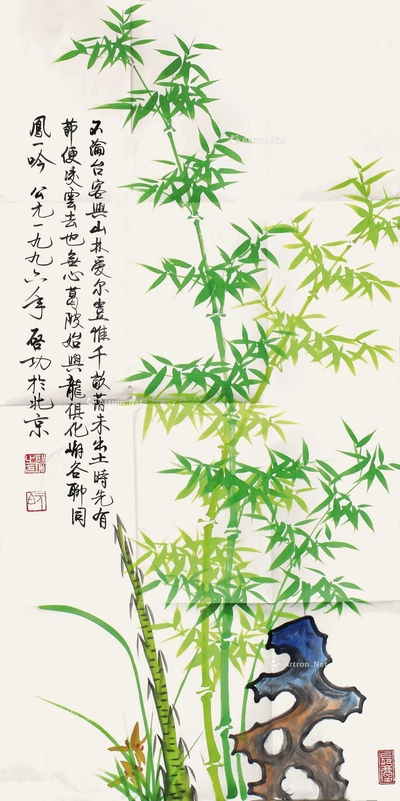 不論台客與山林愛尔豈惟千畝蔭未出土時先有
節便凌雲去也無心葛陂始與龍俱化嶰谷聊同
鳳一吟 公元一九九六年 啓功於北京
Artron.Net
Artron.Net